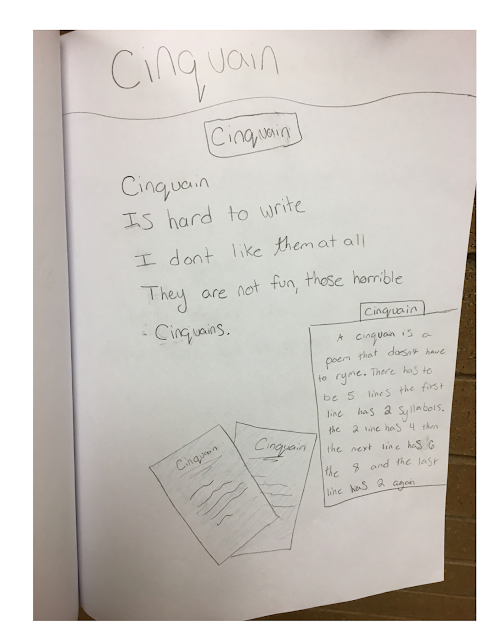 Cinquain
Cinquain
Cinquain
Is hard to write
I dont like them at all
They are not fun, those horrible
Cinquains.
Cinquain
A cinquain is a
poem that doesnt have
to ryme. There has to
be 5 lines the first
line has 2 syllabols.
the 2 line has 4 then
the next line has 6
the 8 and the last
line has 2 again
Cinquain
Cinquain